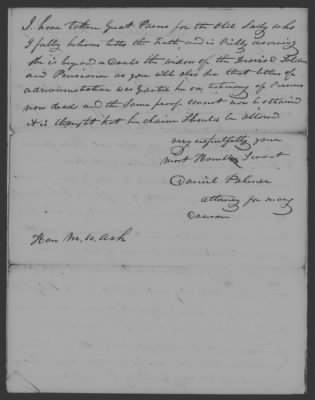 I have taken Great Pains for the Old Lady who
I fully believe tells the Truth and is Richly
She is beyond a doubt the widow of the
and Pensioner as you will also see that letters of
administration was Granted her on testimony of Persons
now dead and the Same proof cannot now be obtained
it is thought her claim Should be allowed
very respectfully your
most Humble Servant
Daniel Palmer
attorney for mary
Dawson
Hon M. W. Ash